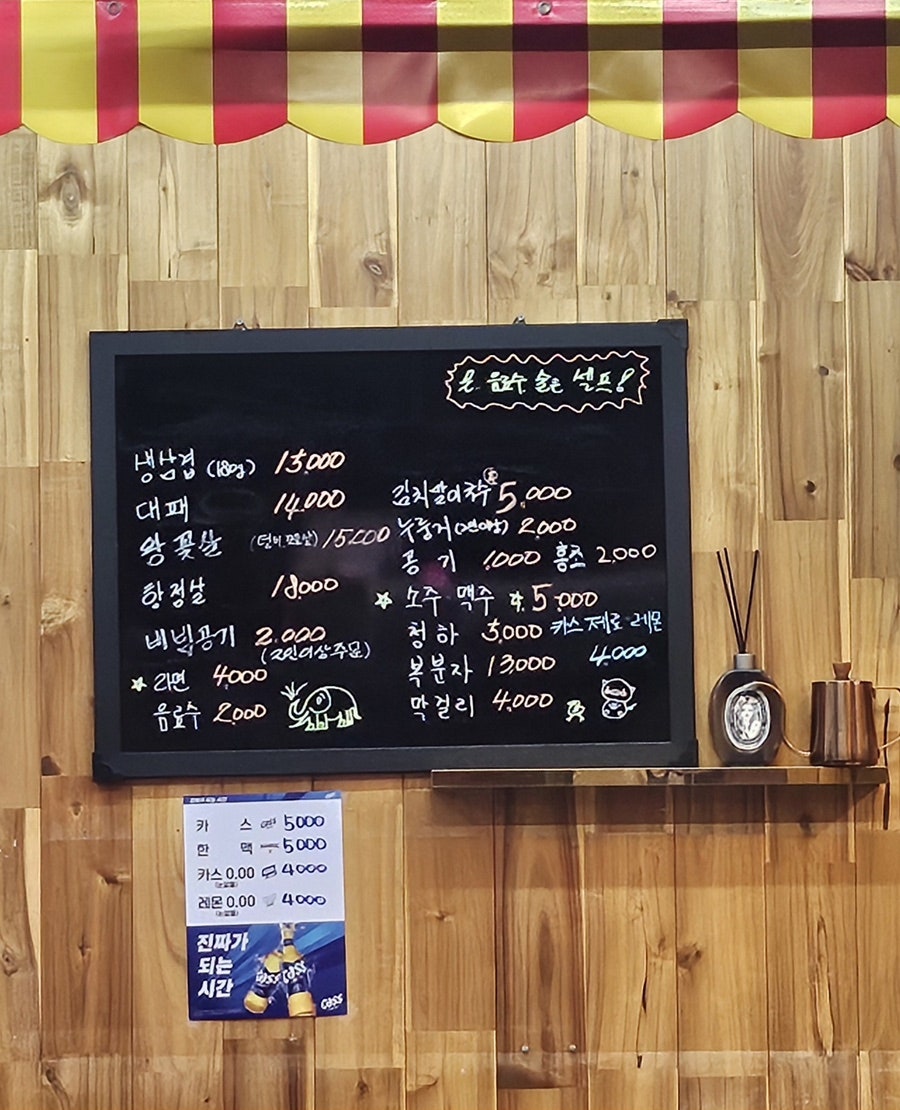 물. 음료수 술은 셀프!
냉삼겹 (180g) 13,000
대패 14,000
왕꽃살 15,000
항정살 18,000
비빔공기 2,000
(2인이상 주문)
☆ 라면 4000
음료수 2,000
김치말이국수 5,000
누룽지 (2인이상) 2,000
공기 1,000 홍초 2,000
☆ 소주 맥주 5,000
청하 5,000 카스 제로 레몬
4,000
복분자 13,000
막걸리 4,000
카스 5000
한맥 5000
카스 0.00 4000
레몬 0.00 4000
진짜가
되는
시간
cass